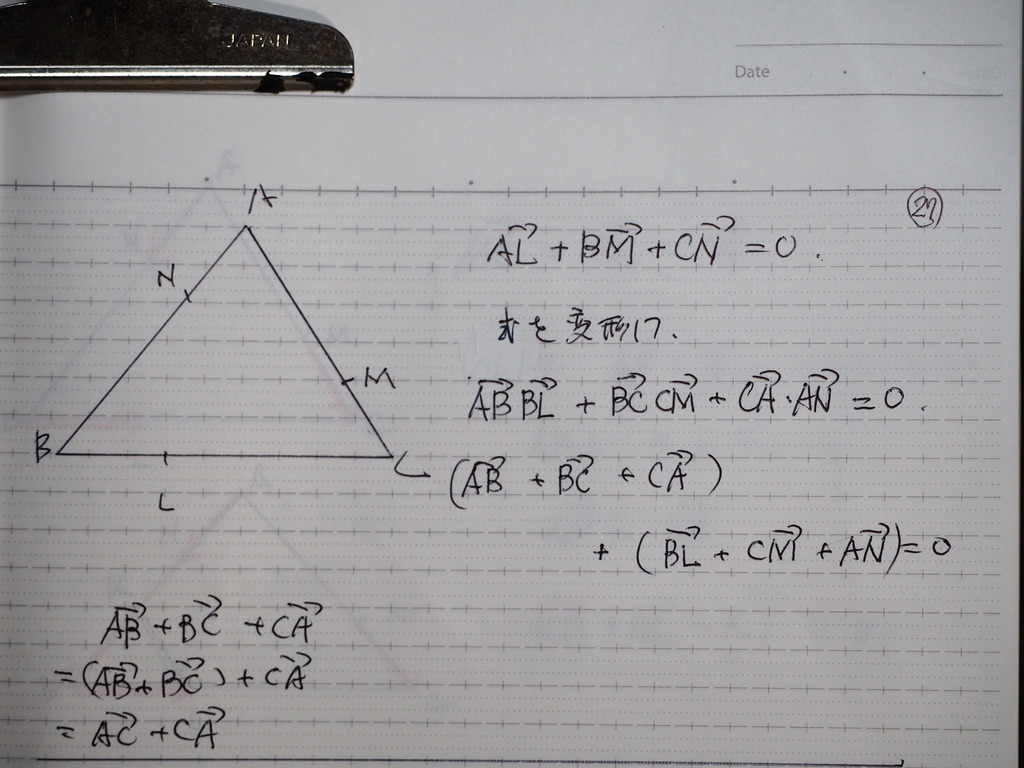 JAPAN
Date
A
N
M
B
L
C
AL→ + BM→ + CN→ = 0.
式を変形して.
AB→ BL→ + BC→ CM→ + CA→・AN→ = 0.
(AB→ + BC→ + CA→)
+ (BL→ + CM→ + AN→) = 0
AB→ + BC→ + CA→
= (AB→ + BC→) + CA→
= AC→ + CA→